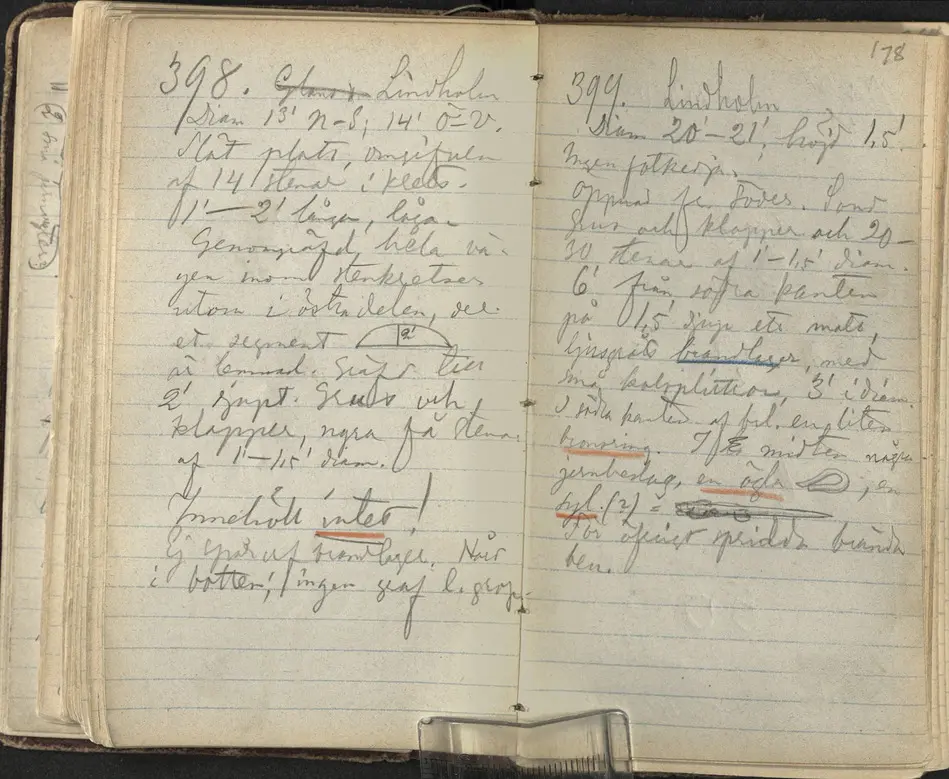 398. Lindholm
Diam 13' N-S; 14' Ö-V.
Flat plats, omgifven
af 14 stenar i krets.
1'–2' långa, låga.
Genomgräfd hela vä-
gen inom stenkretsen
utom i östra delen, der
ett segment 2'
är lemnad. Gräfd till
2' djupt. Grus och
klapper, några få stenar
af 1'–1,5' diam.
Innehöll intet!
Ej spår af brandlager. Når
i botten; ingen graf l. grop.
178
399. Lindholm
Diam 20'–21', höjd 1,5'.
Ingen fotkedja.
Öppnad fr. söder. Sand
grus och klapper och 20–
30 stenar af 1'–1,5' diam.
6' från södra kanten
på 1,5' djup ett matt,
ljusgrått brandlager, med
små kolsplittror, 3' i diam.
I södra kanten af brl. en liten
bronsring. I midten några
jernbeslag, en ögla, en
syl (?) =
För öfrigt spridda brända
ben.